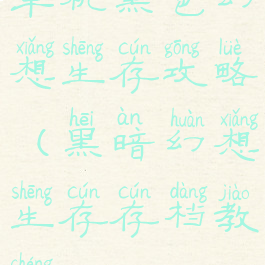 xiǎng shēng cún gōng lüè
想生存攻略
hēi àn huàn xiǎng
(黑暗幻想
shēng cún cún dàng jiào
生存存档教